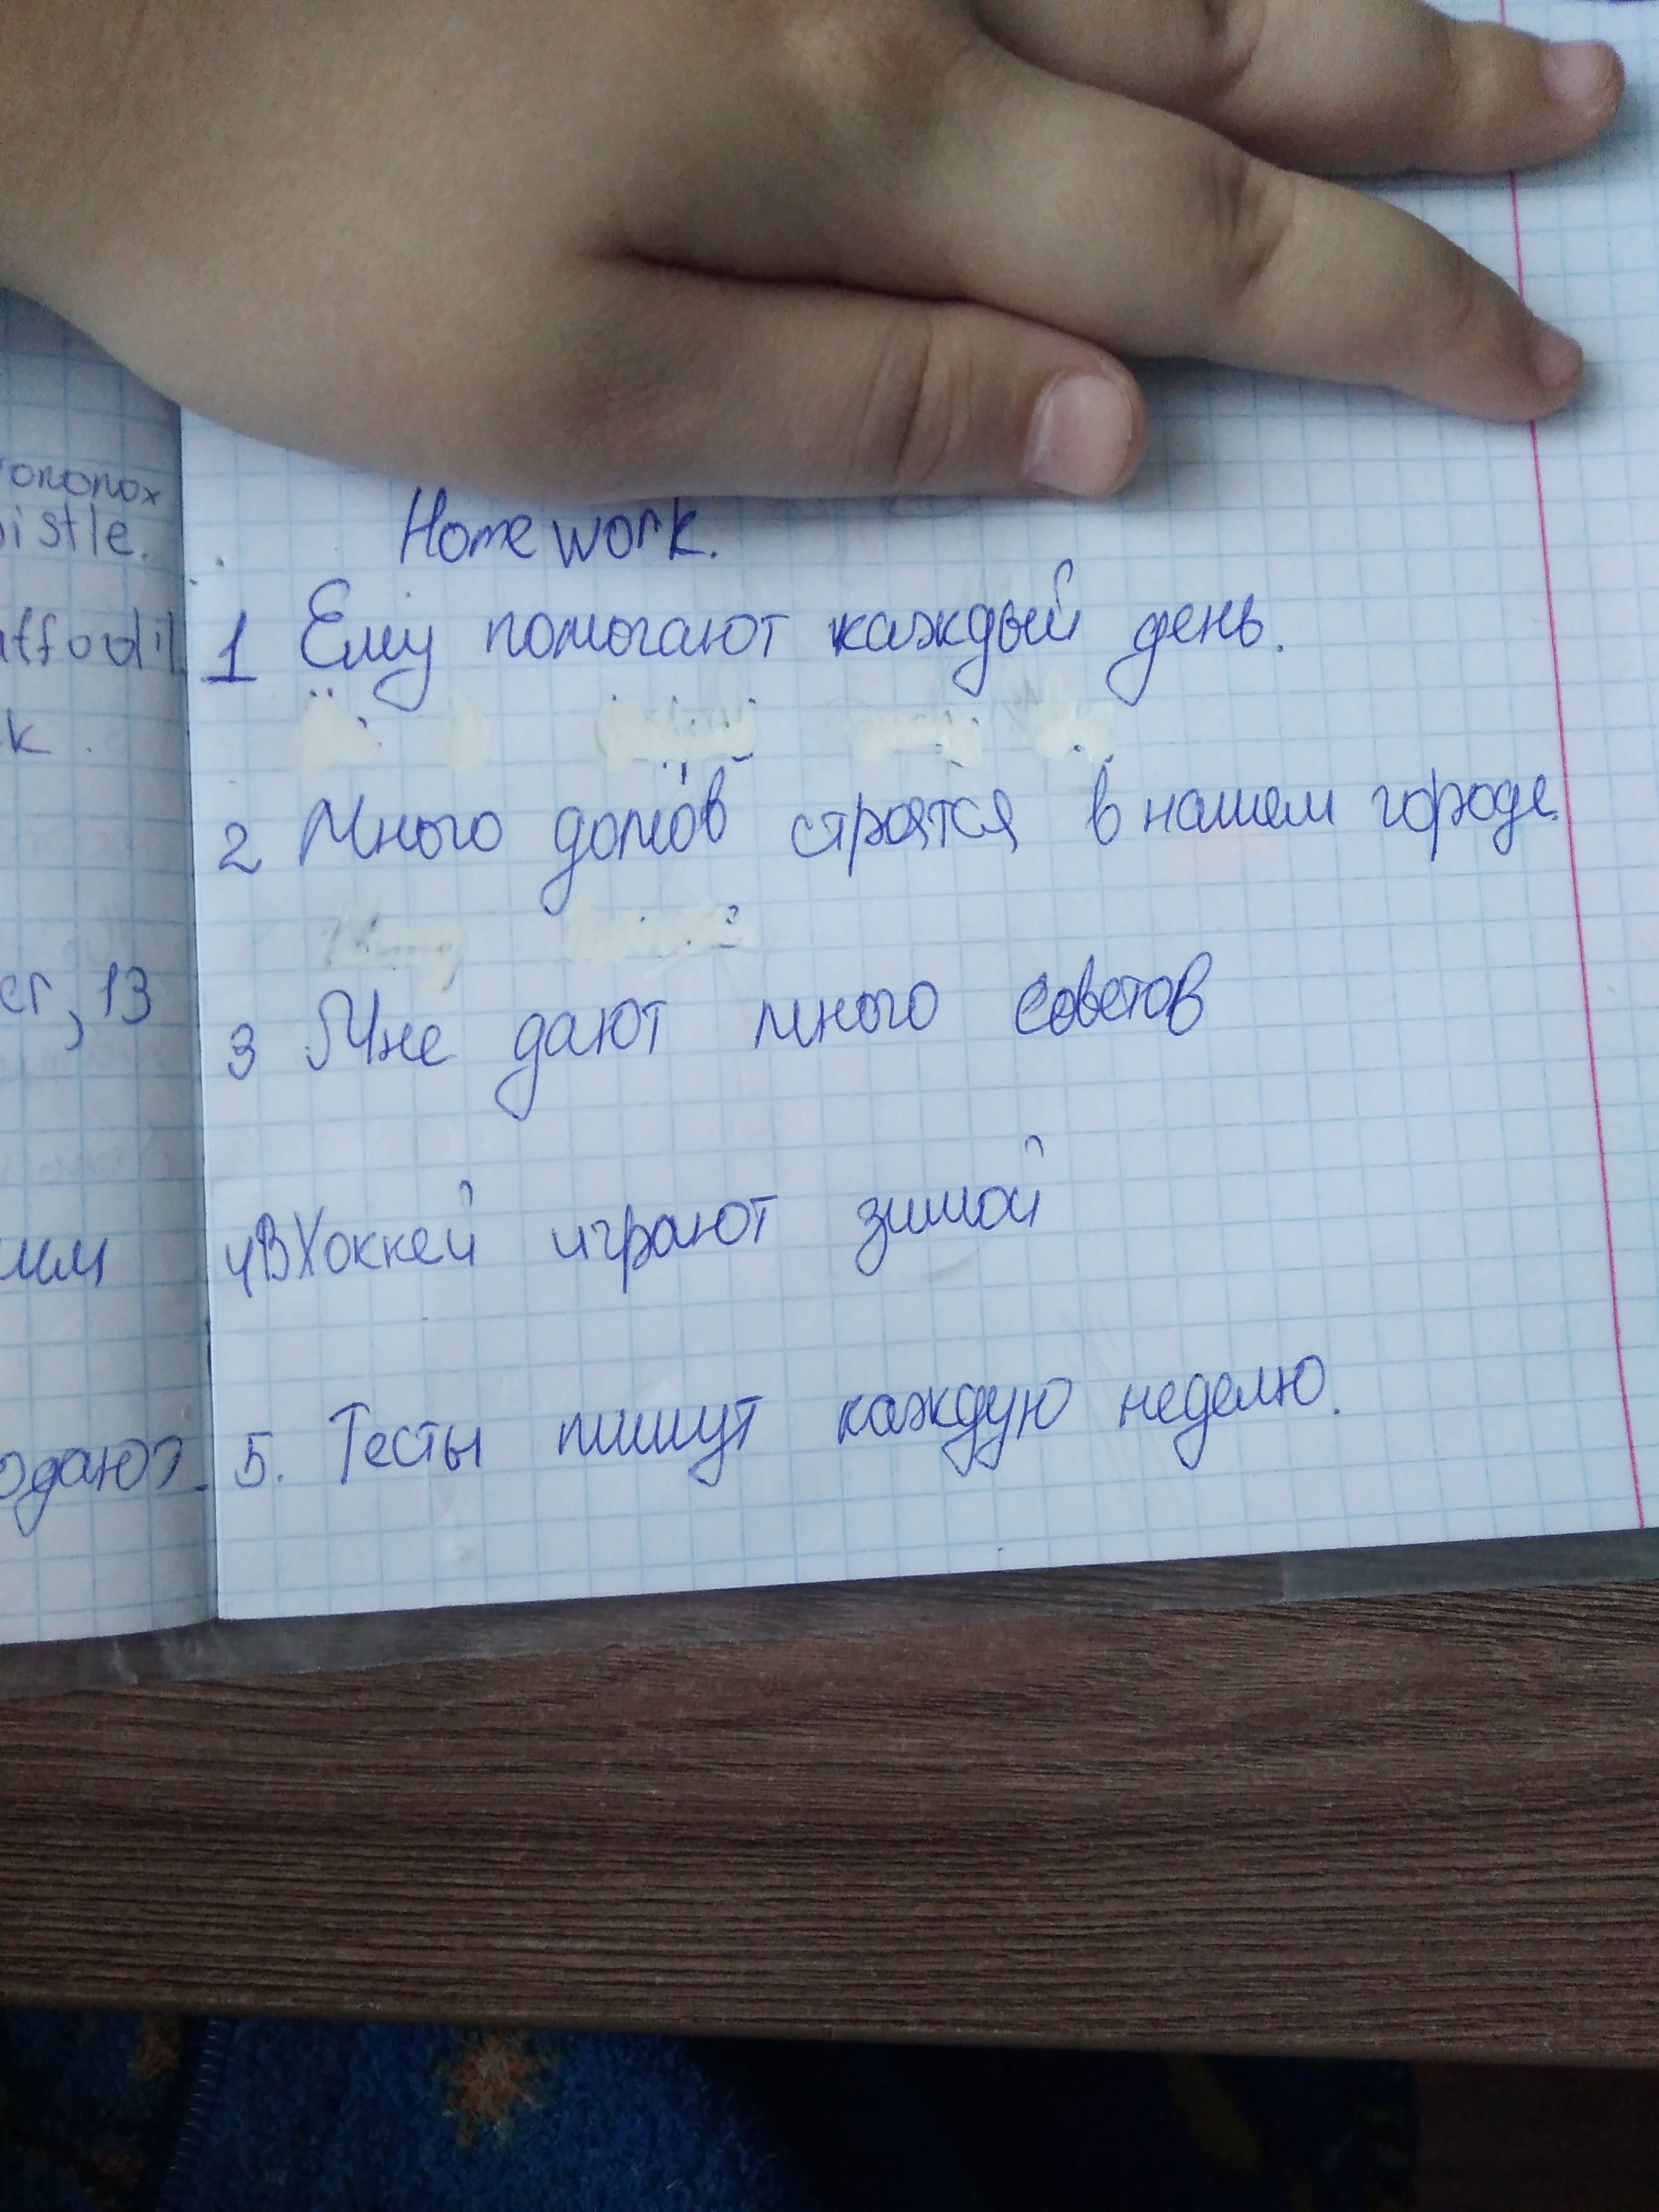 Homework.
1 Ему помогают каждый день.
2 Много домов строятся в нашем городе.
3 Мне дают много советов
4 В Хоккей играют зимой
5. Тесты пишут каждую неделю.
istle.
k.
er, 13